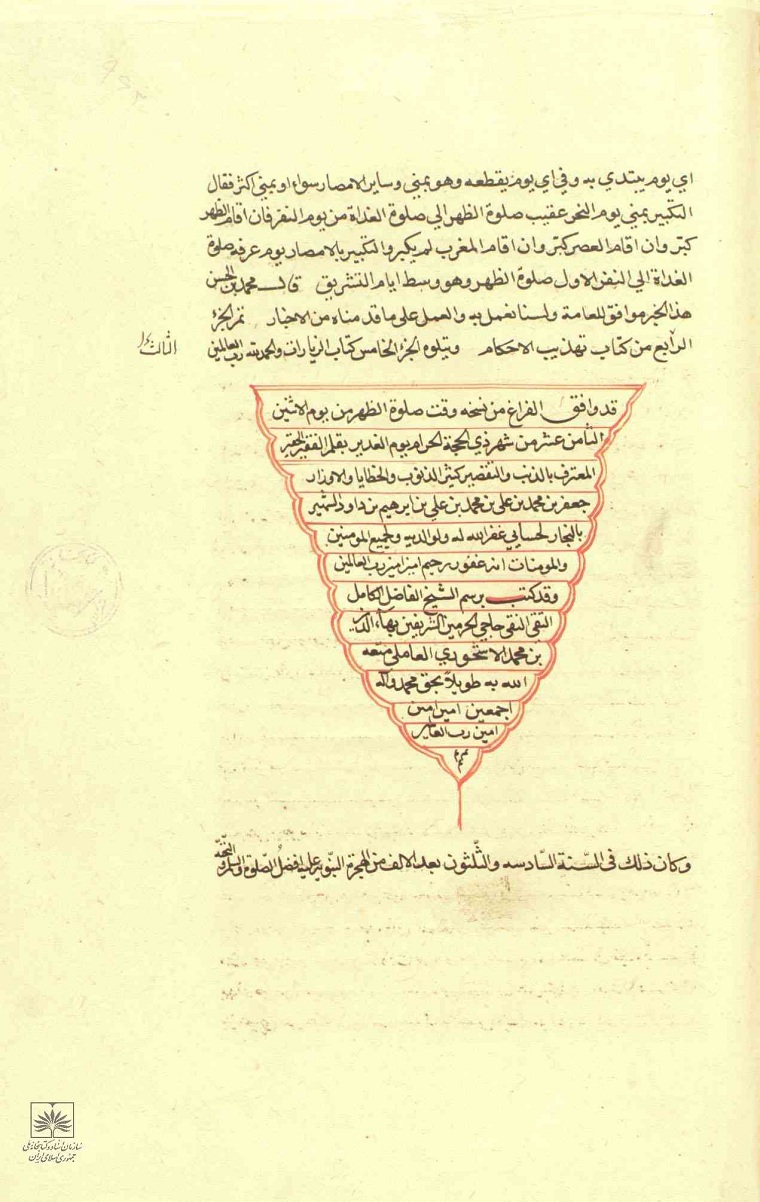 اي يوم يبتدي به وفي اي يوم يقطعه وهو بمني وساير الامصار سواء او بمني اكثر فقال
التكبير بمني يوم النحر عقيب صلوة الظهر الي صلوة الغداة من يوم النفر فان اقام الظهر
كبر وان اقام العصر كبر وان اقام المغرب لم يكبر والتكبير بالامصار يوم عرفه صلوة
الغداة الي النفر الاول صلوة الظهر وهو وسط ايام التشريق قال محمد بن الحسن
هذا الخبر موافق للعامة ولسنا نعمل به والعمل علي ما قدمناه من الاخبار تم الجزء
الرابع من كتاب تهذيب الاحكام ويتلوه الجزء الخامس كتاب الزيارات والحمد لله رب العالمين
الثالث
قد وافق الفراغ من نسخه وقت صلوة الظهر من يوم الاثنين
الثامن عشر من شهر ذي الحجة الحرام يوم الغدير بقلم الفقير الحقير
المعترف بالذنب والتقصير كثير الذنوب والخطايا والاوزار
جعفر بن محمد بن علي بن محمد بن علي بن ابرهيم بن داود الشهير
بالنجار لحسايي غفر الله له ولوالديه ولجميع المومنين
والمومنات انه غفور رحيم امين امين رب العالمين
وقد كتب برسم الشيخ الفاضل الكامل
التقي النقي حاجي الحرمين الشريفين بهاء الدين
بن محمد العاملي متعه
الله به طويلا بحق محمد وآله
اجمعين امين امين
امين رب العالمين
وكان ذلك في السّنة السّادسه والثّلثون بعد الالف من الهجرة النبويه عليه افضل الصّلوة والسلام والتحيّه
سازمان اسناد و کتابخانه ملی
جمهوری اسلامی ایران